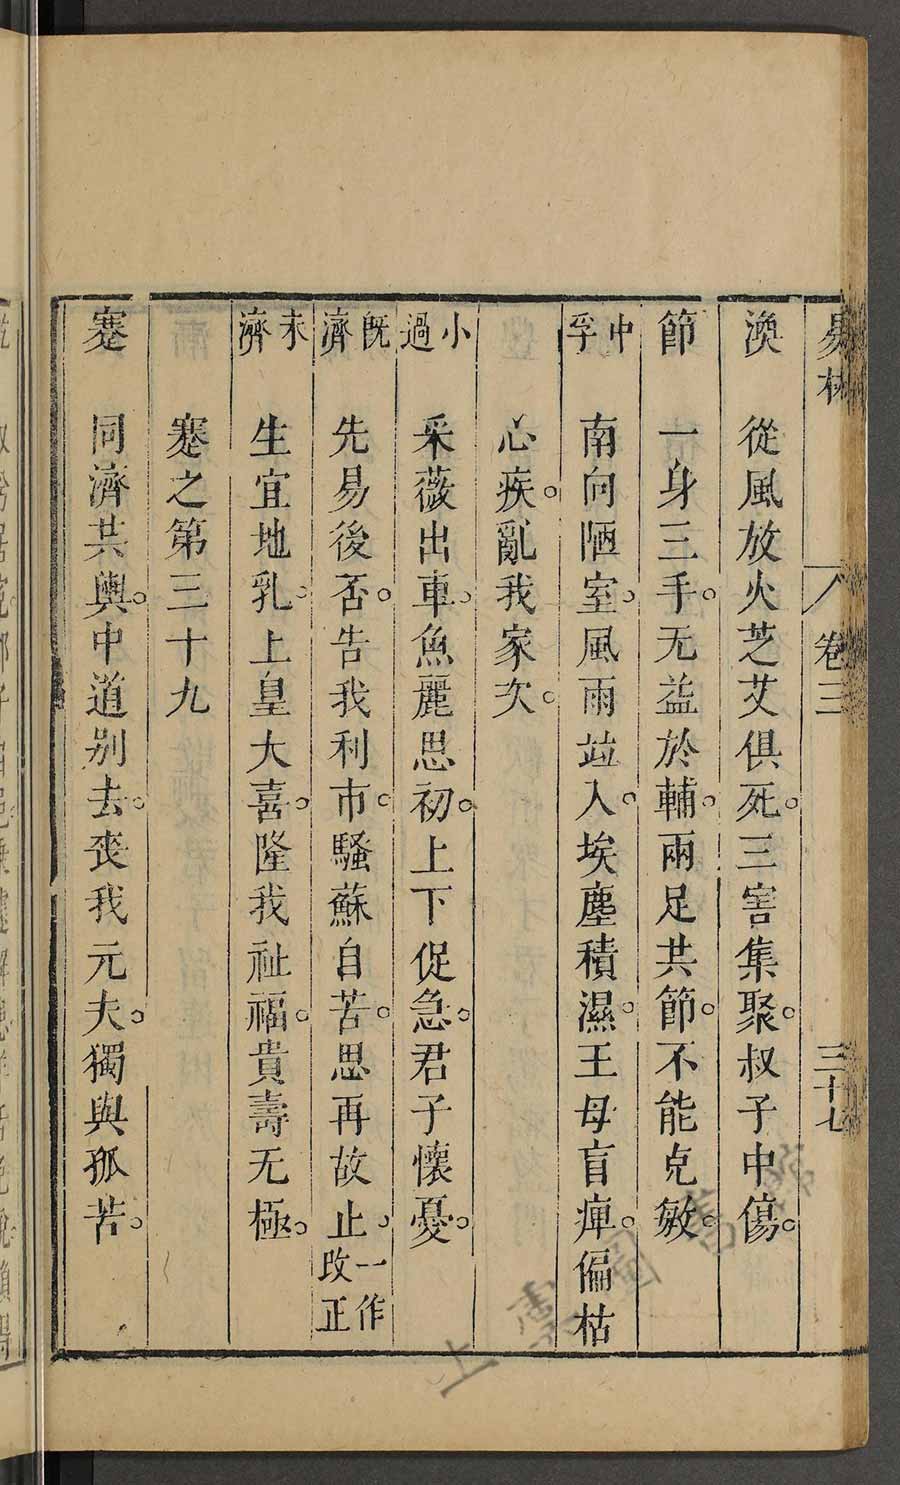 易林 卷三 三十七
渙 從風放火芝艾俱死。三害集聚。叔子中傷。
節 一身三手。无益於輔。兩足共節。不能克敏。
中孚 南向陋室。風雨竝入。埃塵積濕。王母盲痺。偏枯
心疾。亂我家次。
小過 采薇出車。魚麗思初。上下促急。君子懷憂。
旣濟 先易後否。告我利市。騷蘇自苦。思再故止。一作改正
未濟 生宜地乳。上皇大喜。隆我祉福。貴壽无極。
蹇之第三十九
蹇 同濟共輿。中道別去。喪我元夫。獨與孤苦。